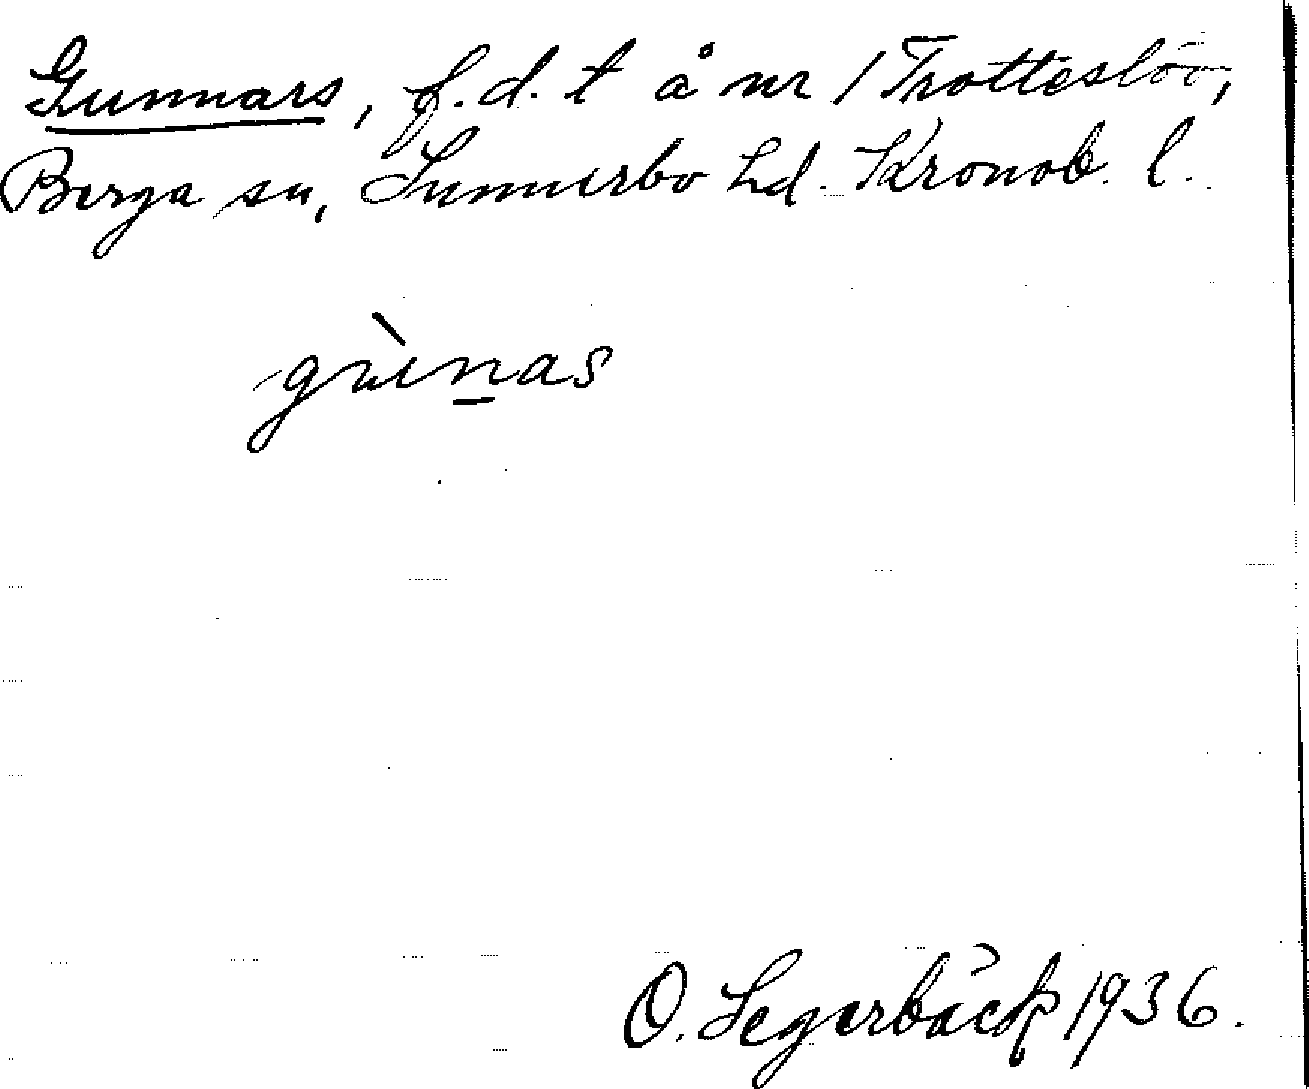 Gunnars, f.d. t å nr 1 Trotteslöv,
Berga sn, Sunnerbo hd. Kronob. l.
gùnas
O. Segerbäck 1936.